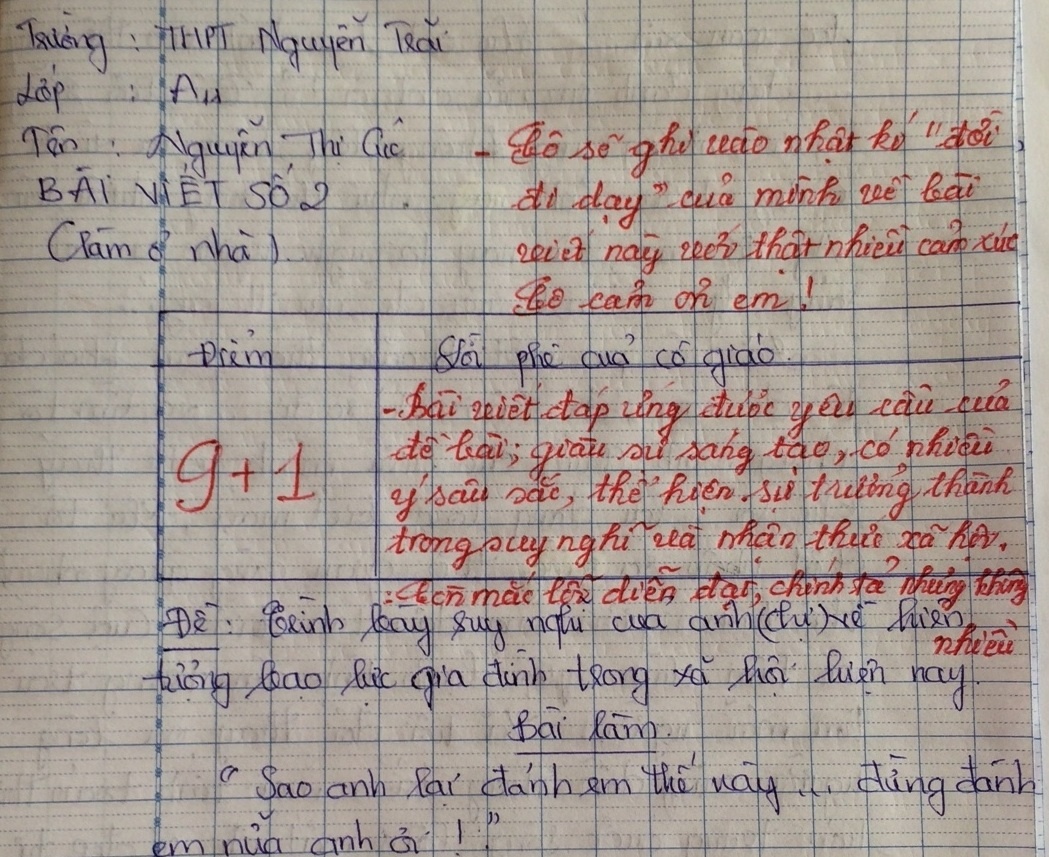 Trường : THPT Nguyễn Trãi
Lớp : A11
Tên : Nguyễn Thị Cúc
BÀI VIẾT SỐ 2
(Làm ở nhà).
- Cô sẽ ghi vào nhật ký "đời
đi dạy" của mình về bài
viết này với thật nhiều cảm xúc
Cô cảm ơn em!
Điểm
Lời phê của cô giáo.
9+1
- Bài viết đáp ứng được yêu cầu của
đề bài; giàu sự sáng tạo, có nhiều
ý sâu sắc, thể hiện sự trưởng thành
trong suy nghĩ và nhận thức xã hội.
: Còn mắc lỗi diễn đạt, chính tả nhưng không
nhiều
Đề: Trình bày suy nghĩ của anh (chị) về hiện
tượng bạo lực gia đình trong xã hội hiện nay.
Bài làm.
" Sao anh lại đánh em thế này ... đừng đánh
em nữa anh ơi !"